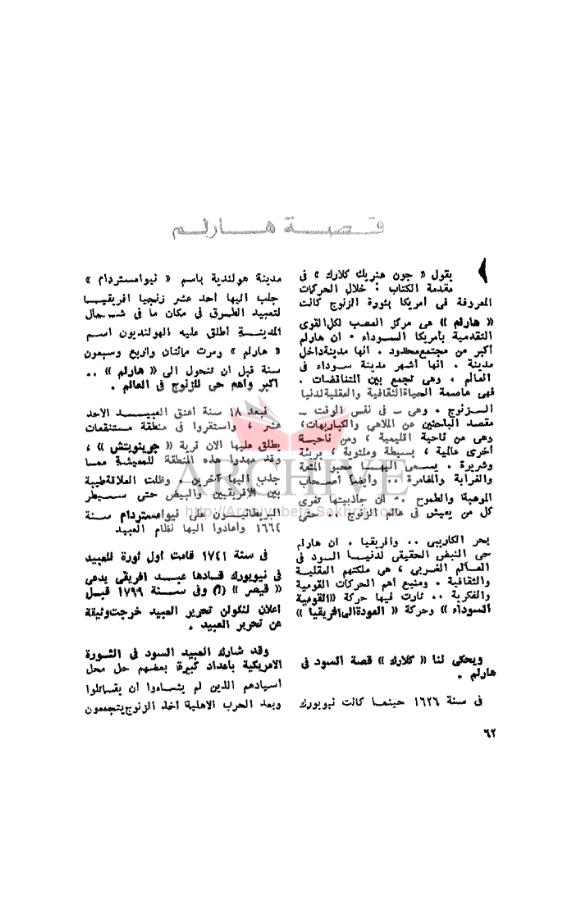 قصة هارلم
يقول « جون هنريك كلارك » فى
مقدمة الكتاب : خلال الحركات
المعروفة فى أمريكا بثورة الزنوج كانت
« هارلم » هى مركز العصب لكل القوى
التقدمية بأمريكا السوداء . ان هارلم
أكبر من مجتمع محدود . انها مدينة داخل
مدينة . انها أشهر مدينة سوداء فى
العالم . وهى تجمع بين التناقضات .
فهى عاصمة الحياة الثقافية والعقلية لدنيا
الزنوج . وهى - فى نفس الوقت -
مقصد الباحثين عن الملاهى والكباريهات،
وهى من ناحية اقليمية ، ومن ناحية
أخرى عالمية ، بسيطة وملتوية ، بريئة
وشريرة . يسعى اليها محبو المتعة
والغرابة والمغامرة .. وأيضا أصحاب
الموهبة والطموح . ان جاذبيتها تغرى
كل من يعيش فى عالم الزنوج .. حتى
بحر الكاريبى .. وافريقيا . ان هارلم
هى النبض الحقيقى لدنيا السود فى
العالم الغربى ، هى ملكتهم العقلية
والثقافية . ومنبع أهم الحركات القومية
والفكرية .. ثارت فيها حركة « القومية
السوداء » وحركة « العودة الى افريقيا »
ويحكى لنا « كلارك » قصة السود فى
هارلم .
فى سنة ١٦٢٦ حينما كانت نيويورك
مدينة هولندية باسم « نيوامستردام »
جلب اليها أحد عشر زنجيا افريقيا
لتعبيد الطرق فى مكان ما فى شمال
المدينة أطلق عليه الهولنديون اسم
« هارلم » ومرت مائتان وأربع وسبعون
سنة قبل أن تتحول الى « هارلم » ..
أكبر وأهم حى للزنوج فى العالم .
فبعد ١٨ سنة أعتق العبيد الأحد
عشر ، واستقروا فى منطقة مستنقعات
يطلق عليها الآن قرية « جرينويتش » ،
وقد مهدوا هذه المنطقة للمعيشة مما
جلب اليها آخرين . وظلت العلاقة طيبة
بين الافريقيين والبيض حتى سيطر
البريطانيون على نيوامستردام سنة
١٦٦٤ وأعادوا اليها نظام العبيد
فى سنة ١٧٤١ قامت أول ثورة للعبيد
فى نيويورك قادها عبد افريقى يدعى
« قيصر » (!) وفى سنة ١٧٩٩ قبل
اعلان لنكولن تحرير العبيد خرجت وثيقة
عن تحرير العبيد .
وقد شارك العبيد السود فى الثورة
الأمريكية بأعداد كبيرة، بعضهم حل محل
أسيادهم الذين لم يشاءوا أن يقاتلوا
وبعد الحرب الأهلية أخذ الزنوج يتجمعون
٦٢
ARCHIVE
http://Archivebeta.Sakhrit.com